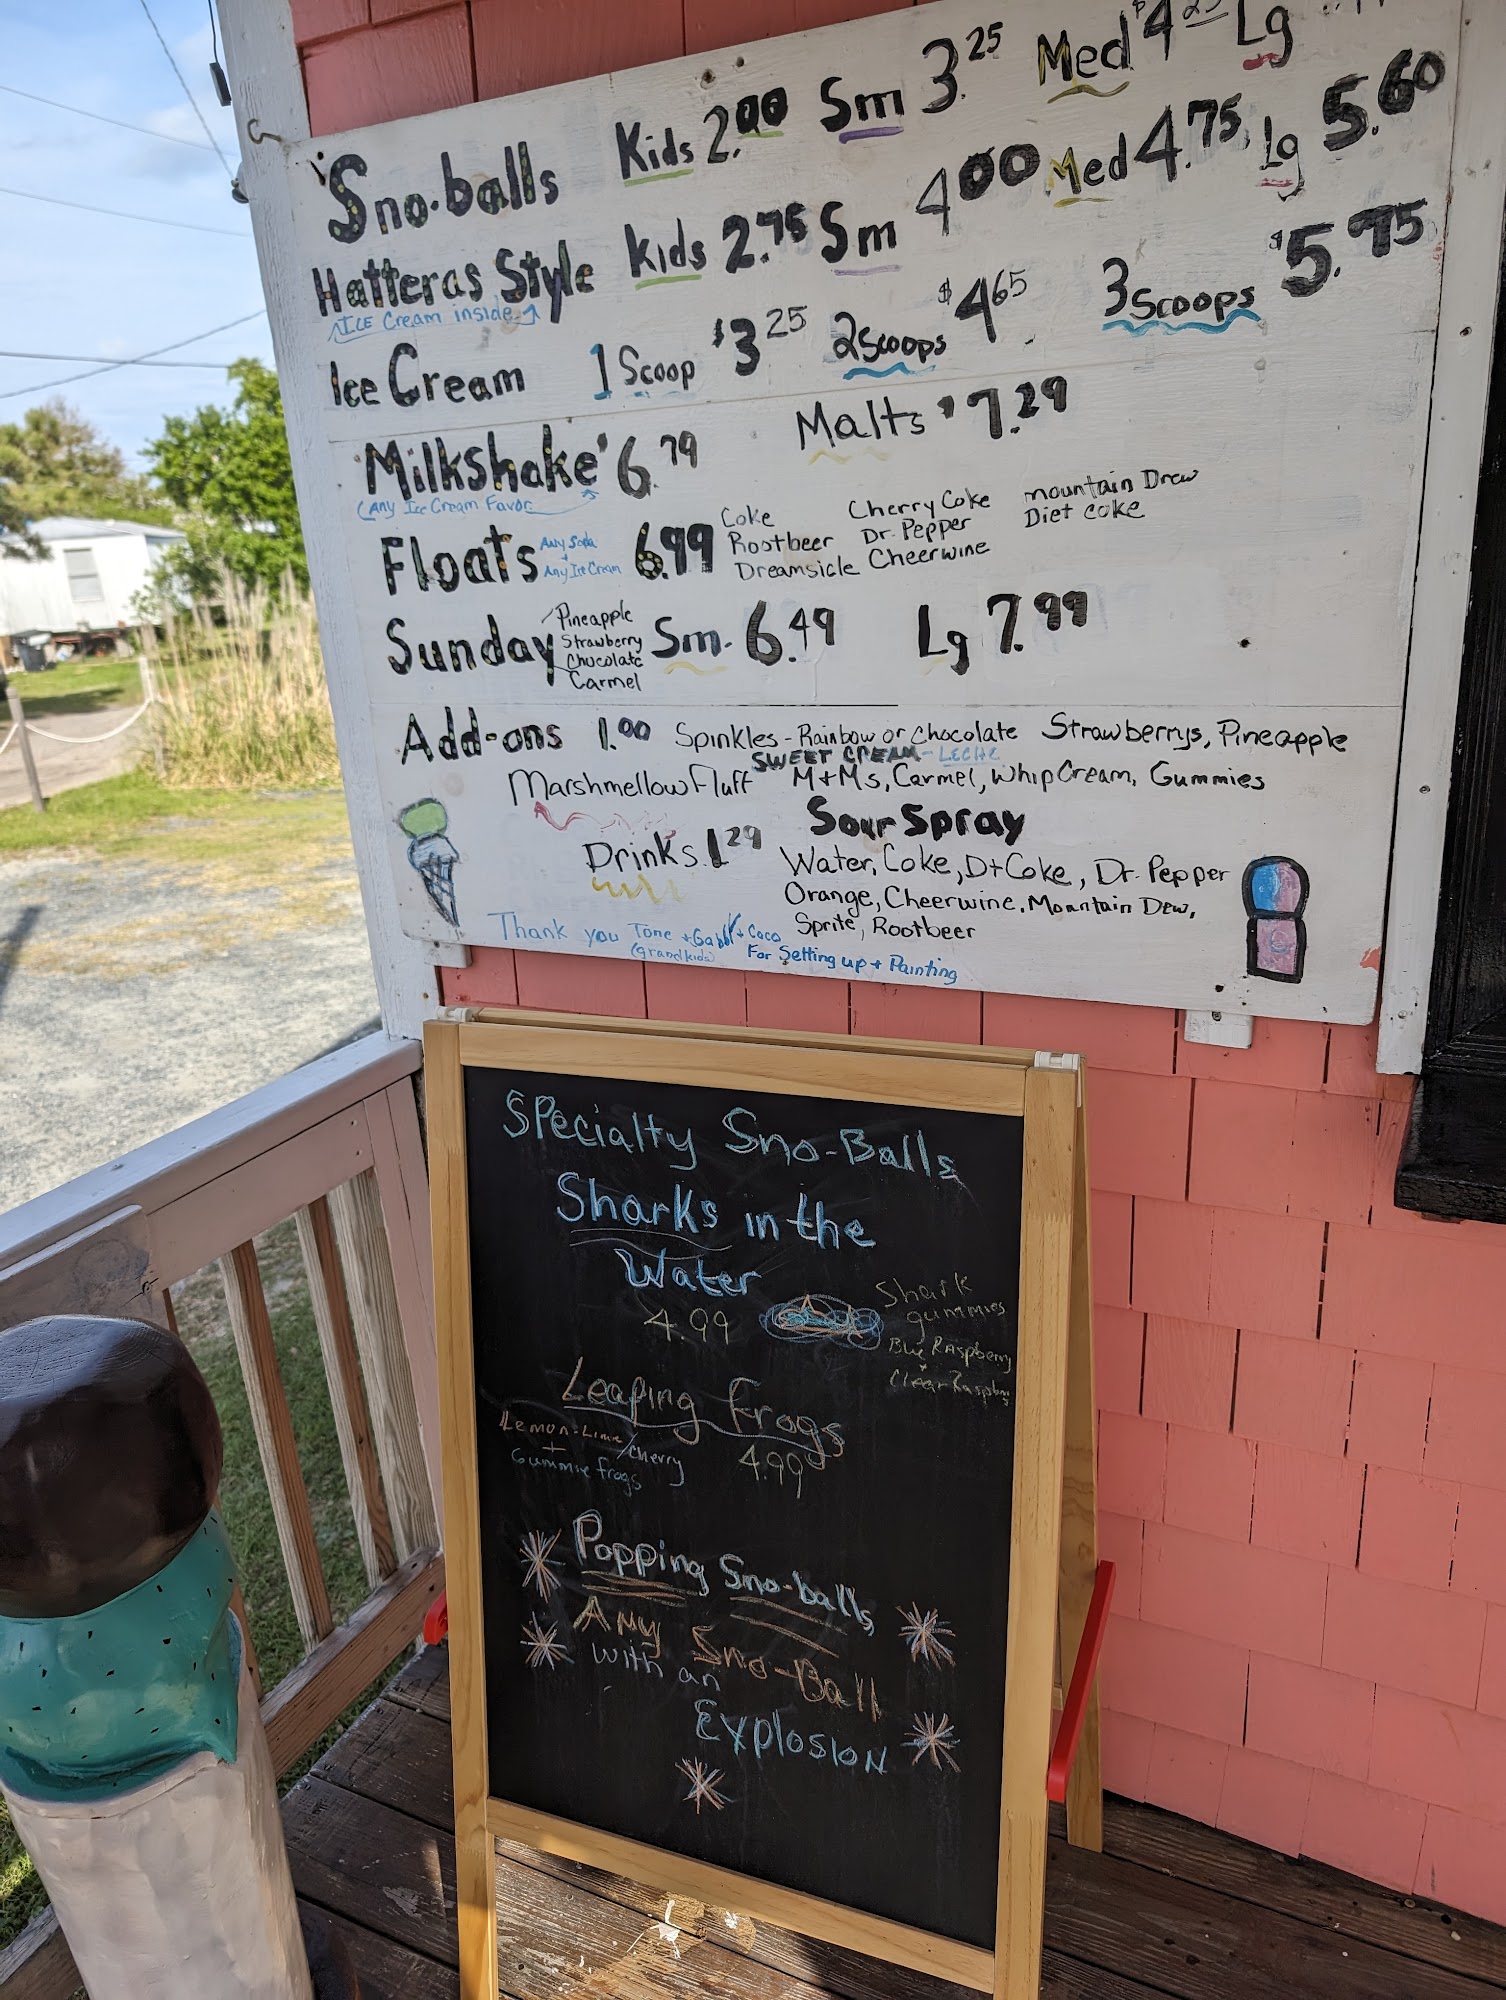 Sno-balls Kids 2.00 Sm 3.25 Med $4.25 Lg
Hatteras Style Kids 2.75 Sm 4.00 Med 4.75 Lg 5.60
ICE Cream inside
Ice Cream 1 Scoop $3.25 2 Scoops $4.65 3 Scoops $5.75
Milkshake $6.79 Malts $7.29
(Any Ice Cream Favor
Floats Any Soda + Any Ice Cream 6.99
Coke Cherry Coke mountain Drew
Rootbeer Dr. Pepper Diet coke
Dreamsicle Cheerwine
Sunday Sm. 6.49 Lg 7.99
Pineapple
Strawberry
Chucolate
Carmel
Add-ons 1.00 Spinkles - Rainbow or Chocolate Strawberrys, Pineapple
SWEET CREAM - LECHE
Marshmellow Fluff M+Ms, Carmel, Whip Cream, Gummies
Sour Spray
Drinks 1.29 Water, Coke, Dt Coke, Dr. Pepper
Orange, Cheerwine, Mountain Dew,
Sprite, Rootbeer
Thank you Tone + Gabby + Coco
(grandkids) For Setting up + Painting
Specialty Sno-Balls
Sharks in the
Water
4.99
Shark
gummies
Blue Raspberry
+
Clear Raspberry
Leaping frogs
Lemon-Lime/Cherry
+
Gummie frogs
4.99
Popping Sno-balls
Any Sno-Ball
with an
Explosion